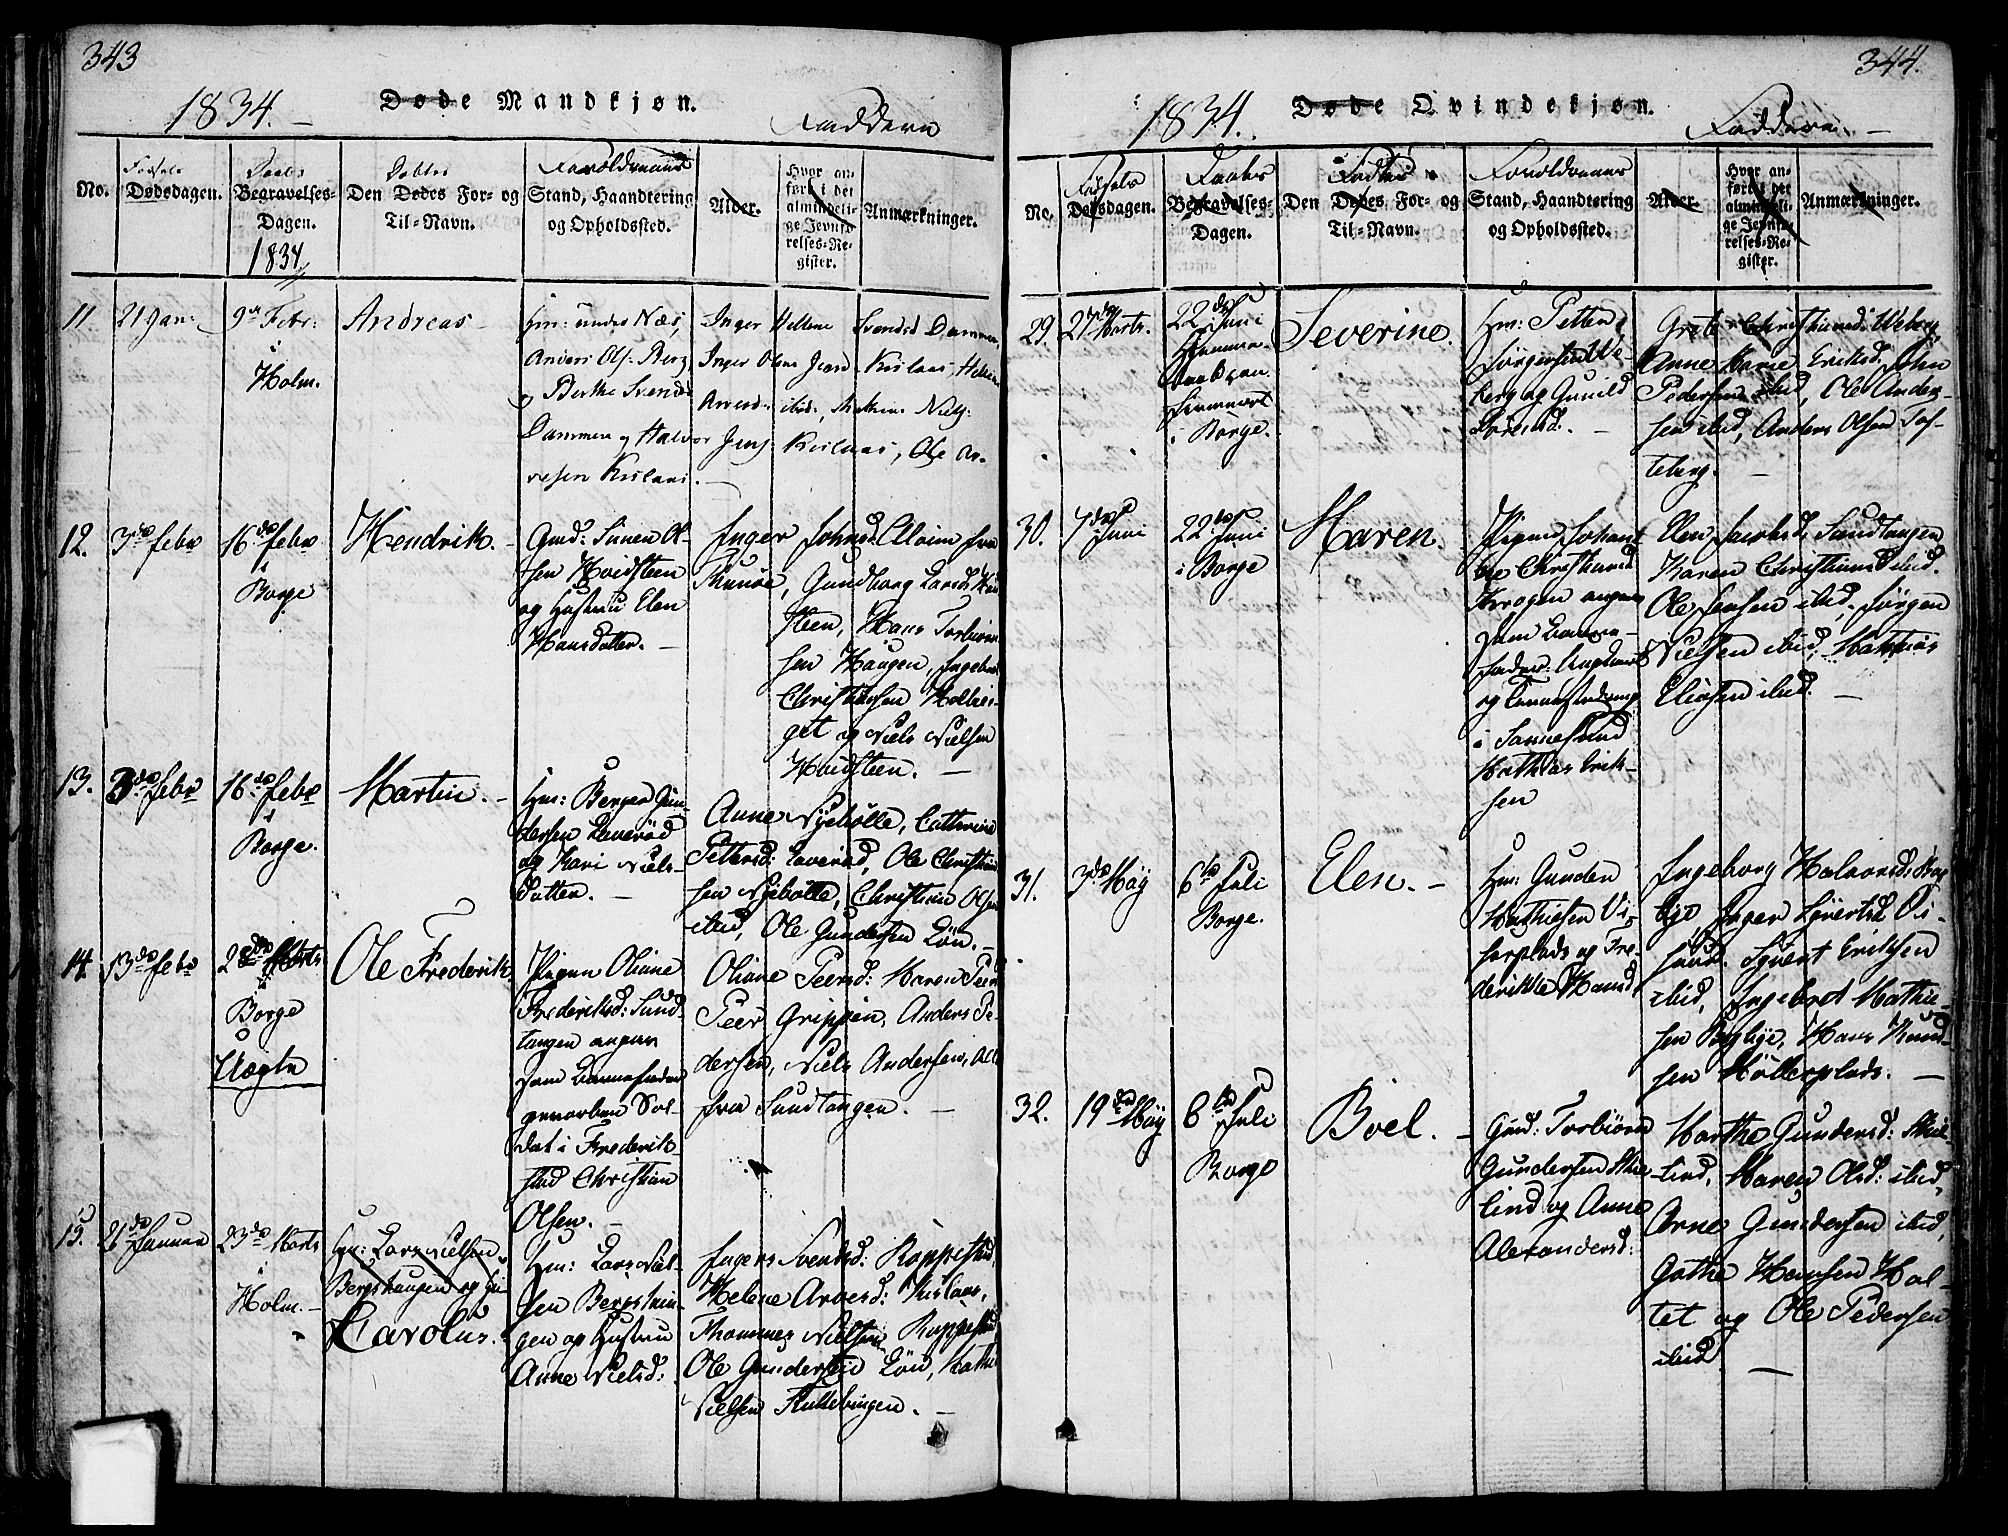 343
1834. Døde Mandkjøn. Faddere
No.
Fødsels Dødsdagen.
Daabs Begravelses-
Dagen.
1834
Døbtes
Den Dødes For- og
Til-Navn.
Forældrenes
Stand, Haandtering
og Opholdssted.
Alder.
Hvor an-
ført i det
almindeli-
ge Jevnfø-
relses-Re-
gister.
Anmærkninger.
11
21 Jan:
9de Febr:
i
Holm.
Andreas
Hm: under Næs,
Anders Ols: Berg
og Berthe Svends
Dammen og Halvor
Inger Hellene Svendsd Dammen,
Jens: Kislaas, Ole Ar-
12.
3de Febr
16de Febr
i
Borge
Hendrik.
Gmd: Simen Ol-
sen Hvidsteen
og Hustru Elen
Hansdatter.
Inger Johnsd.
Gundborg Larsd:
steen, Hans Torbiørn
sen Haugen, Ingebret
Christiansen
get og Niels Nielsen
Hvidsteen.
13.
3de Febr
16de Febr
i
Borge.
Martin.
Hm: Berger Gun-
dersen Laverød
og Kari Niels-
datter.
Anne Nyebølle, Cathrine
Pettersd: Laverød, Ole Christian
sen Nyebølle, Christian Olsen
ibid, Ole Gundersen Løn.
14.
13de Febr
23de Marts
i
Borge
Uægte
Ole Frederik
Pigen Oliane
Frederiksd: Sund-
tangen angiver
som Barnefader
Sol-
dat i Frederik-
stad Christian
Olsen.
Oliane Peersd: Maren Peer
Peer Grippen, Anders Pe-
dersen, Niels Andersen, Alle
fra Sundtangen.
15.
26de Januar
23de Marts
i
Holm.
Hm: Lars Nielsen
Bergshaugen og
Carolus.
Hm: Lars Niel-
sen Bergshau-
gen og Hustru
Anne Nielsd:
Ingers Svendsd: Roppestad,
Helene Arvesd: Kislaas,
Thommes Nielsen Roppestad,
Ole Gundersen Løn, Mathis
Nielsen
344.
1834. Døde Qvindekjøn. Faddere.
No.
Fødsels
Dødsdagen.
Daabs
Begravelses-
Dagen.
Døbtes
Den Dødes For- og
Til-Navn.
Forældrenes
Stand, Haandtering
og Opholdssted.
Alder.
Hvor an-
ført i det
almindeli-
ge Jevnfø-
relses-Re-
gister.
Anmærkninger.
29.
27de Marts.
22de Juni
Hiemme-
døbt
i Borge.
Severine.
Hm: Petter
Jørgensen We-
berg og Gunild
Grete Christiansd: Weberg,
Anne Marie Eriksd, John
Pedersen ibid, Ole Ander-
sen ibid, Anders Olsen Tof-
teberg.
30.
7de Juni
22de Juni
i Borge
Maren.
Pigen Johan-
ne Christiansd
Krogen angiver
som Barne-
fader: Ungkarl
i Sannesund
Mathias Erik-
sen
Elen Jacobsd, Sundtangen
Karen Christiansd ibid.
Ole Jensen ibid, Jørgen
Nielsen ibid, Mathias
Eliasen ibid.
31.
3de May
6te Juli
Borge.
Elen.
Hm: Gunder
Mathiesen Vi-
serplads og Fre-
derikke Hansd,
Ingeborg Halvorsd:
Inger Syvertsd Vi-
Syvert Eriksen
ibid, Ingebret Mathie-
sen Hans Knud-
sen Møllerplads.
32.
19de May
6te Juli
Borge
Boel.
Gmd: Torbiørn
Gundersen Skie-
lind og Anne
Alexandersd:
Marthe Gundersd: Skie-
lind, Maren Olsd: ibid,
Arne Gundersen ibid,
Gathe Hansen Hol-
tet og Ole Pedersen
ibid